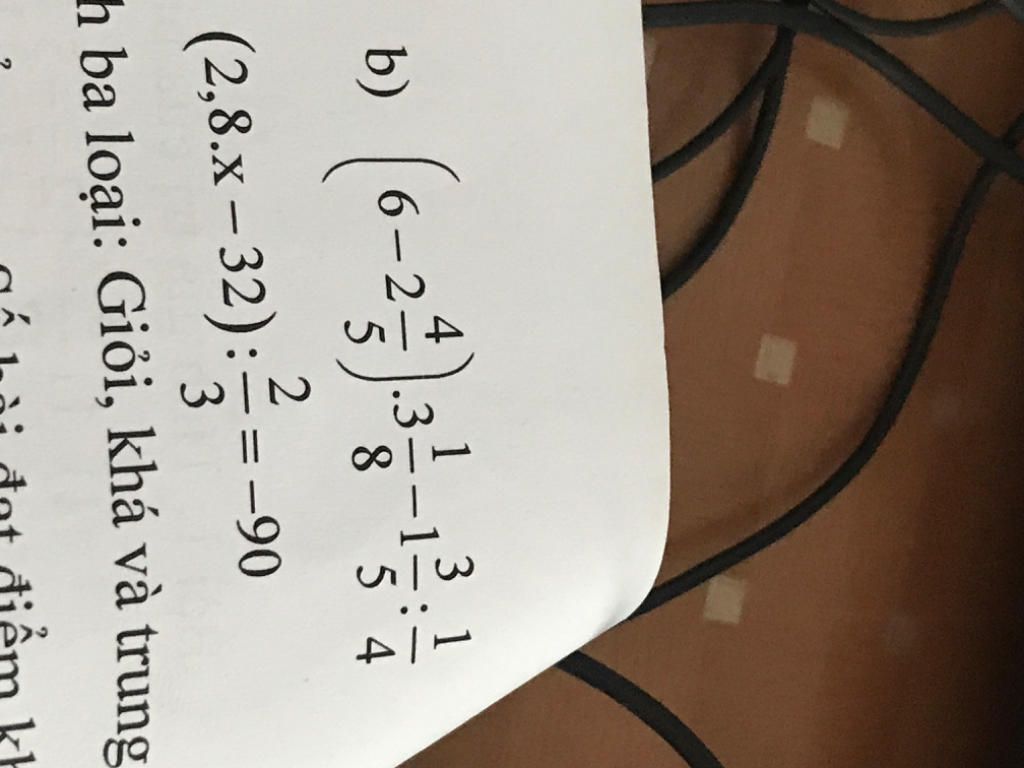 b) (6 − 2 4/5) . 3 1/8 − 1 3/5 : 1/4
(2,8.x − 32) : 2/3 = −90
ba loại: Giỏi, khá và trung
đạt điểm